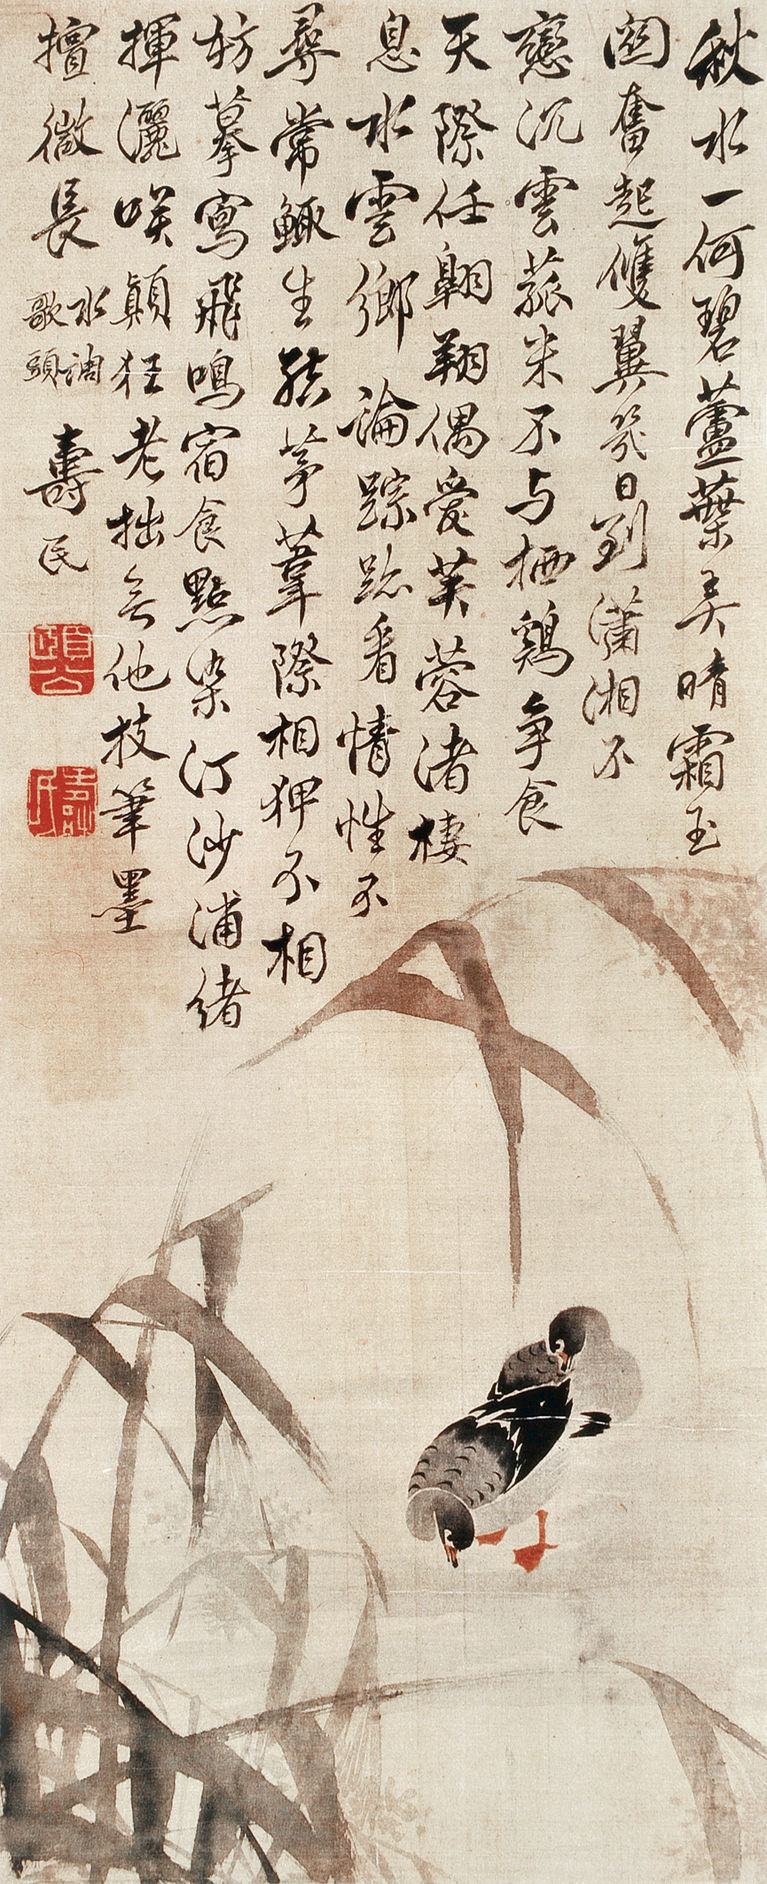 秋水一何碧蘆葉弄晴霜玉
關奮起雙翼幾日到瀟湘不
戀沉雲菰米不与栖鷄爭食
天際任翱翔偶愛芙蓉渚棲
息水雲鄉論踪跡看情性不
尋常鯫生結茅葦際相狎不相
妨摹寫飛鳴宿食點染汀沙浦緒
揮灑咲顛狂老拙無他技筆墨
擅微長
水調
歌頭
壽民
頤公
壽民